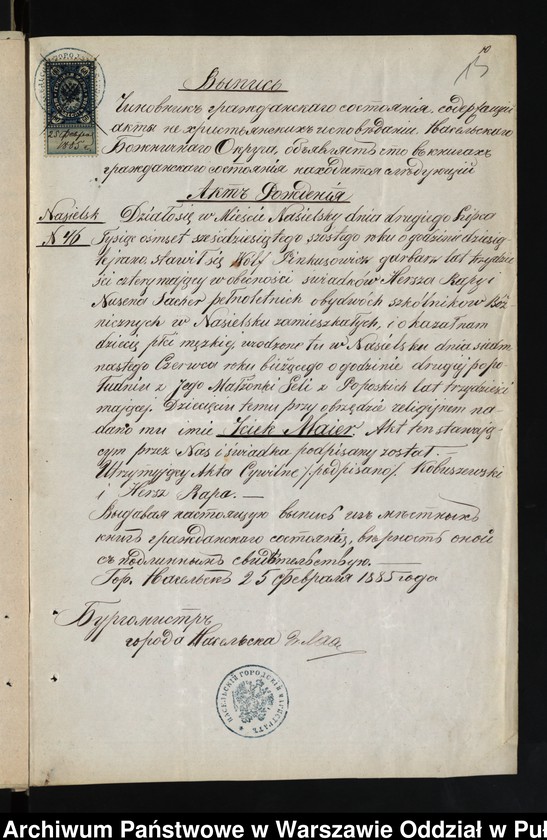 10
13
Выпись
25 Февр.
1885 г.
Чиновникъ гражданскаго состоянія содержащій
акты не христіянскихъ исповѣданій Насельскаго
Божничнаго Округа, объявляетъ что въ книгахъ
гражданскаго состоянія находится слѣдующій
Актъ Рожденія
Nasielsk
N 46
Działosię w Mieście Nasielsku dnia drugiego Lipca
Tysiąc osmset sześćdziesiątego szostego roku o godzinie dziesią
tej rano, stawił się Wolf Pinkusowicz garbarz lat trzydzie
ści cztery mający w obecności świadków Hersza Rapy i
Nusena Sacher pełnoletnich obydwóch szkólnikow Bóż
nicznych w Nasielsku zamieszkałych, i okazał nam
dziecię płci męzkiej, urodzone tu w Nasielsku dnia siedm
nastego Czerwca roku bieżącego o godzinie drugiej popo
łudniu z Jego Małżonki Peli z Poposkich lat trzydzieści
mającej. Dziecięciu temu przy obrządzie religijnem na
dano mu imie Icek Maier. Akt ten stawają
cym przez Nas i świadka podpisany został. —
Utrzymujący Akta Cywilne /podpisano/ Kobuszewski
i Hersz Rapa. —
Выдавая настоящую выпись изъ мѣстныхъ
книгъ гражданскаго состоянія, вѣрность оной
съ подлиннымъ свидѣтельствую. —
Гор. Насельскъ 25 Февраля 1885 года
Бургомистръ
города Насельска
НАСЕЛЬСКІЙ ГОРОДСКІЙ МАГИСТРАТЪ
Archiwum Państwowe w Warszawie Oddział w Puł